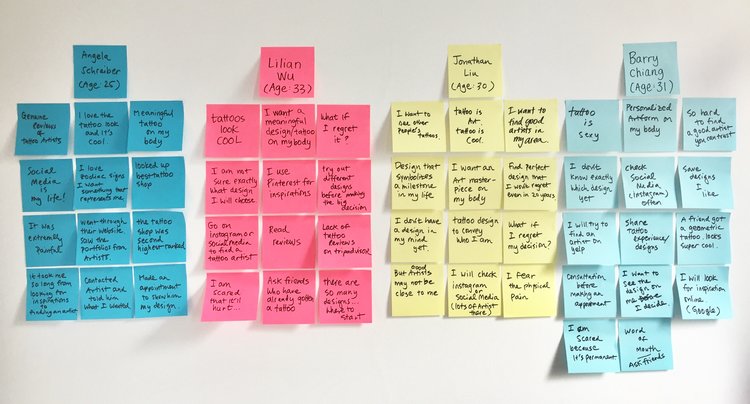 Angela
Schraiber
(Age: 25)
Genuine
Reviews of
Tattoo Artists
I love the
tattoo look
and it's
Cool.
Meaningful
tattoo
on my
body
Social
Media is
my life!
I love
zodiac signs
I want
something that
represents me.
looked up
best tattoo
shop
It was
extremly
Painful
Went through
their website,
Saw the
Portfolio from
Artists.
the tattoo
shop was
second
highest ranked.
it took me
so long from
looking for
inspirations
finding an artist
Contacted
Artist and
told him
what I wanted
Made an
appointment
to show him
my design...
Lilian
Wu
(Age: 33)
tattoos
look
COOL
I want a
meaningful
design/tattoo
on my body
What if
I regret
it?
I am not
sure exactly
what design
I will choose.
I use
Pinterest for
inspirations
try out
different
designs
before making
the big
decision
Go on
Instagram or
social media
to find a
tattoo artist
Read
reviews
Lack of
tattoo
reviews
on tripadvisor
I am
scared that
it'll
hurt...
Ask friends
who have
already gotten
a tattoo
there are
so many
designs...
where to
start
Jonathan
Liu
(Age: 30)
I want to
see other
People's
tattoos
tattoo is
Art.
tattoo is
Cool.
I want to
find good
artists in
my area.
Design that
Symbolizes
a milestone in
my life
I want an
Art master-
piece on
my body
Find perfect
design that
I won't regret
even in 20 years
I don't have
a design in
my mind
yet
tattoo design
to convey
who I am
What if
I regret
my decision?
But good Artists
may not be
close to me
I will check
instagram
or
Social Media
(lots of Artist
there)
I fear
the physical
Pain
Barry
Chiang
(Age: 31)
tattoo
is
Sexy
Personalized
Artform on
my body
So hard
to find
a good artist
you can trust
I don't
Know exactly
which design
yet
Check
Social
Media
(Instagram)
often
Save
designs
I like
I will try
to find
an artist
on yelp
Share
tattoo
experience/
designs
A friend got
a geometric
tattoo, looks
super cool.
Consultation
before
making an
appointment
I want to
see the
design on
me before
I decide
I will look
for inspiration
online
(Google)
I am
Scared
because
it's permanent
Word
of
Mouth
Ask friends